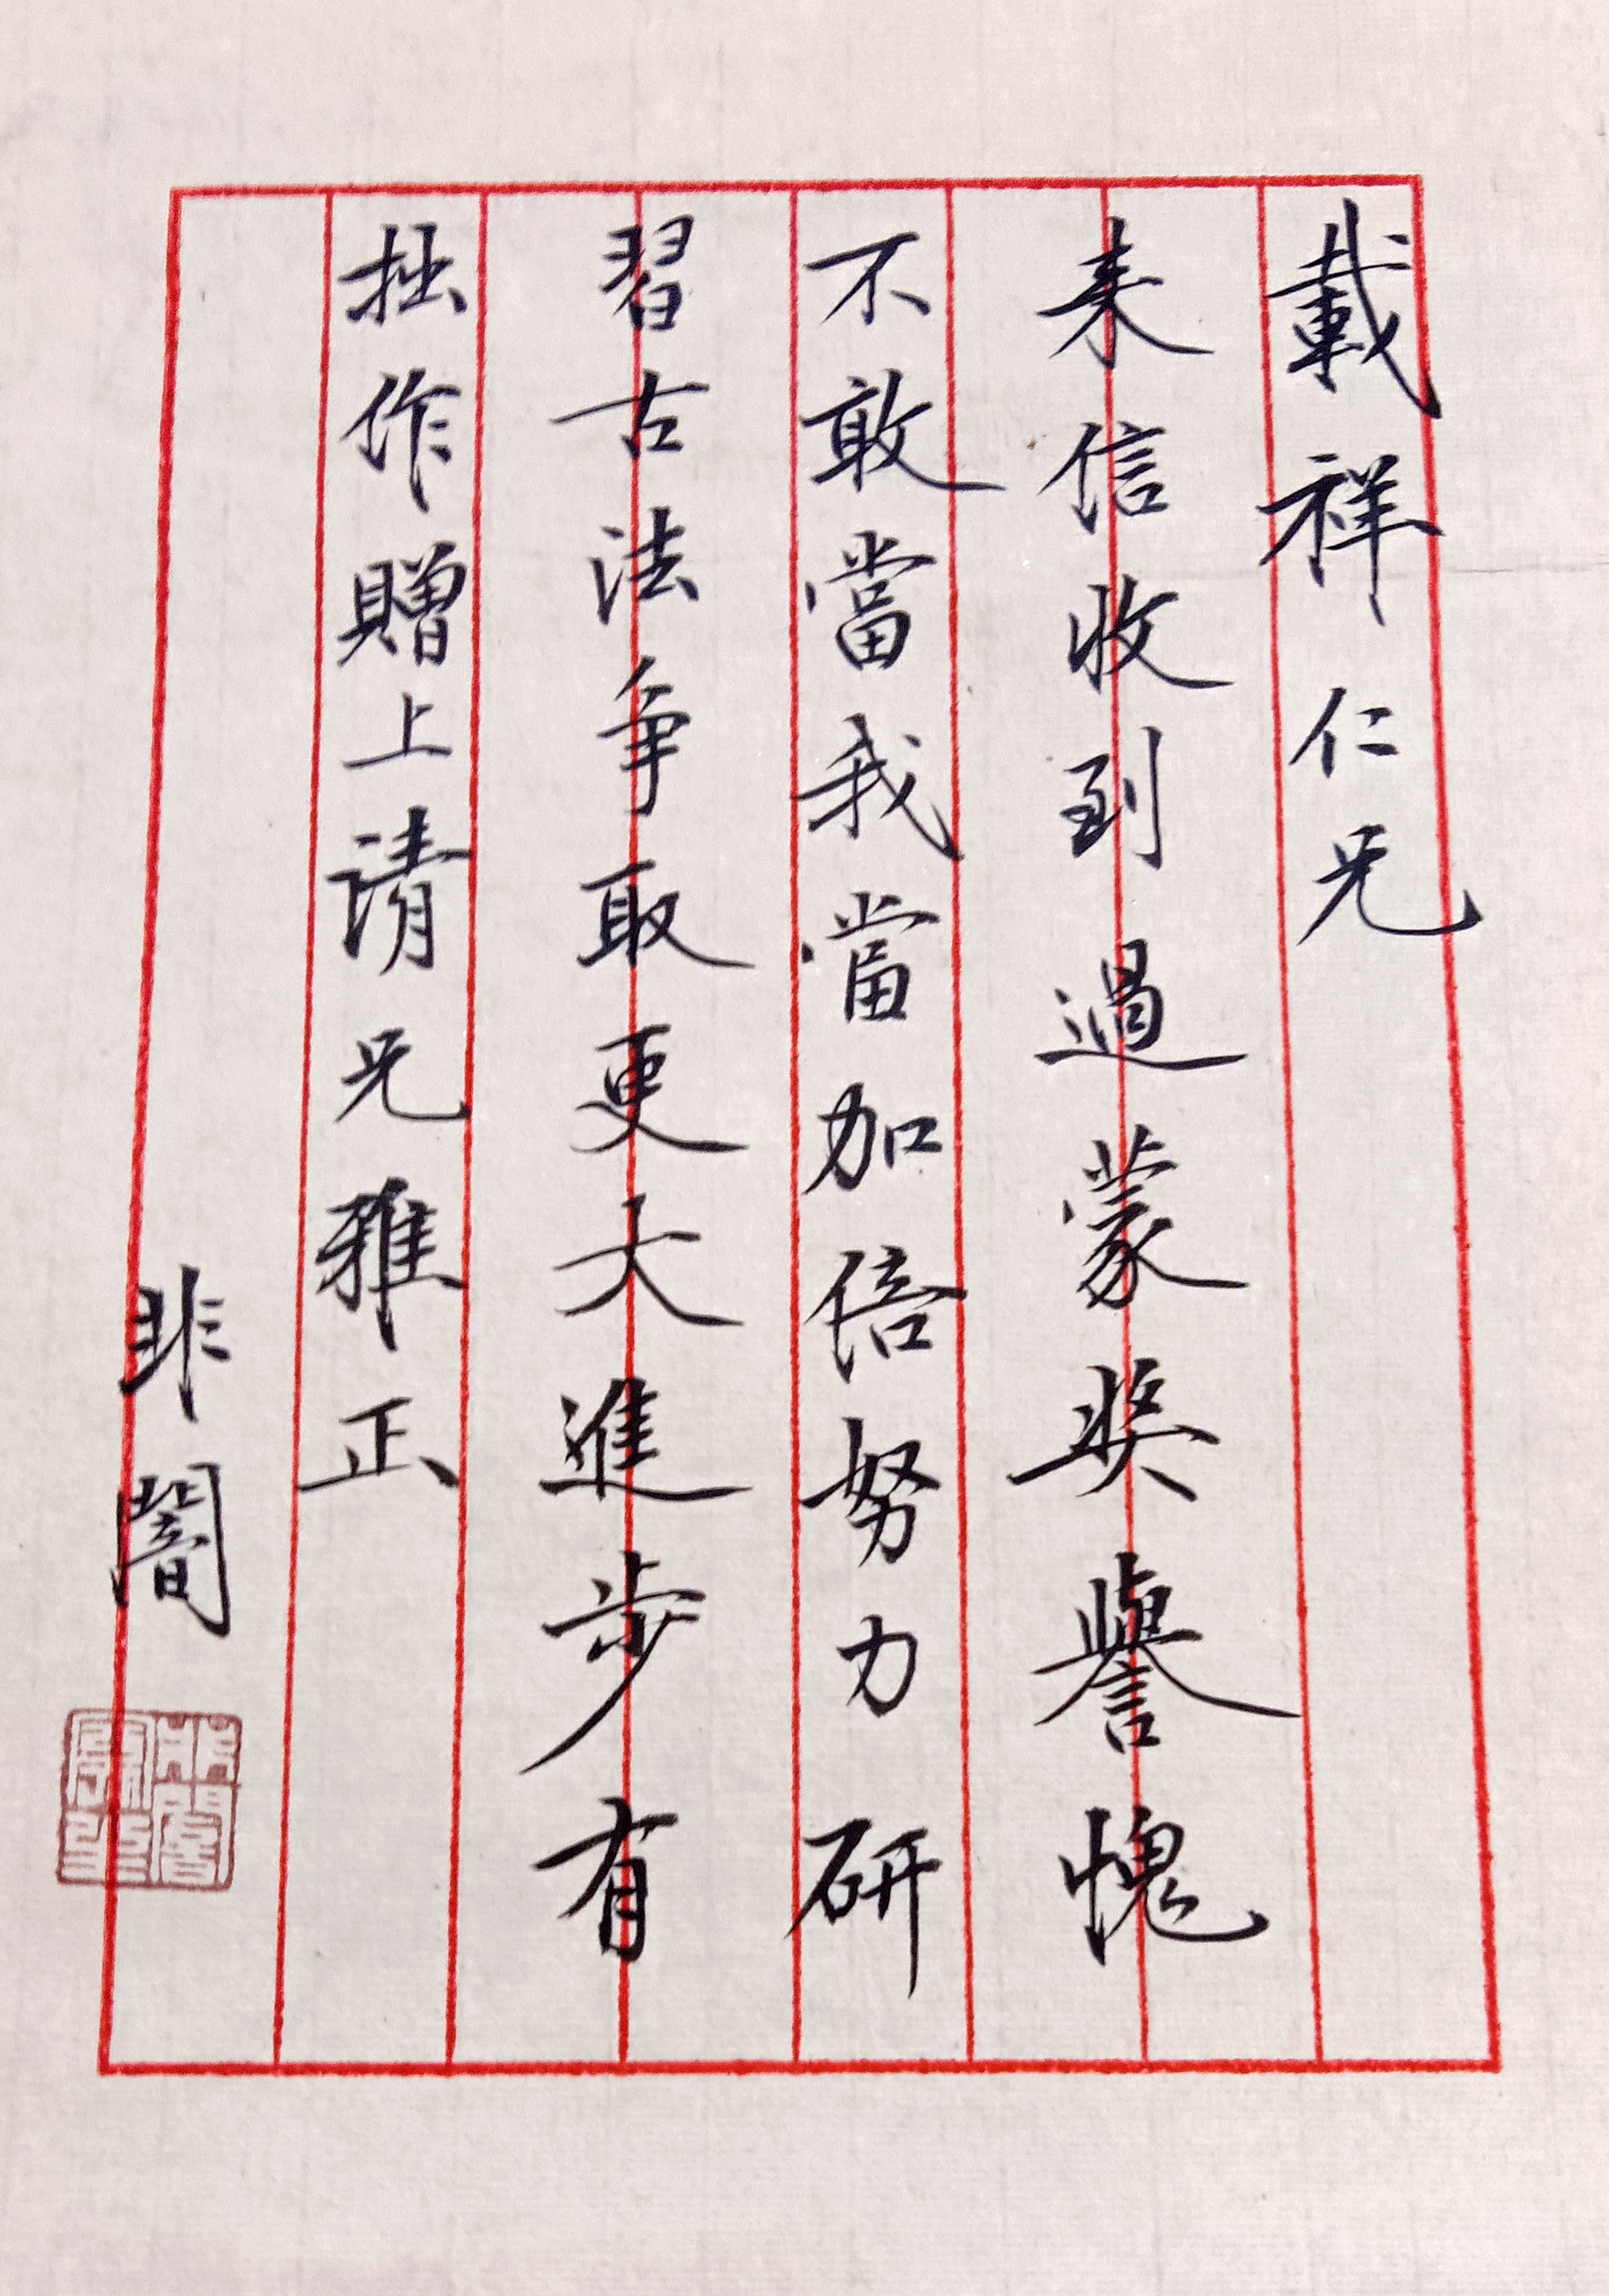 載祥仁兄
来信收到過蒙奖譽愧
不敢當我當加倍努力研
習古法争取更大進步有
拙作贈上请兄雅正
非闇